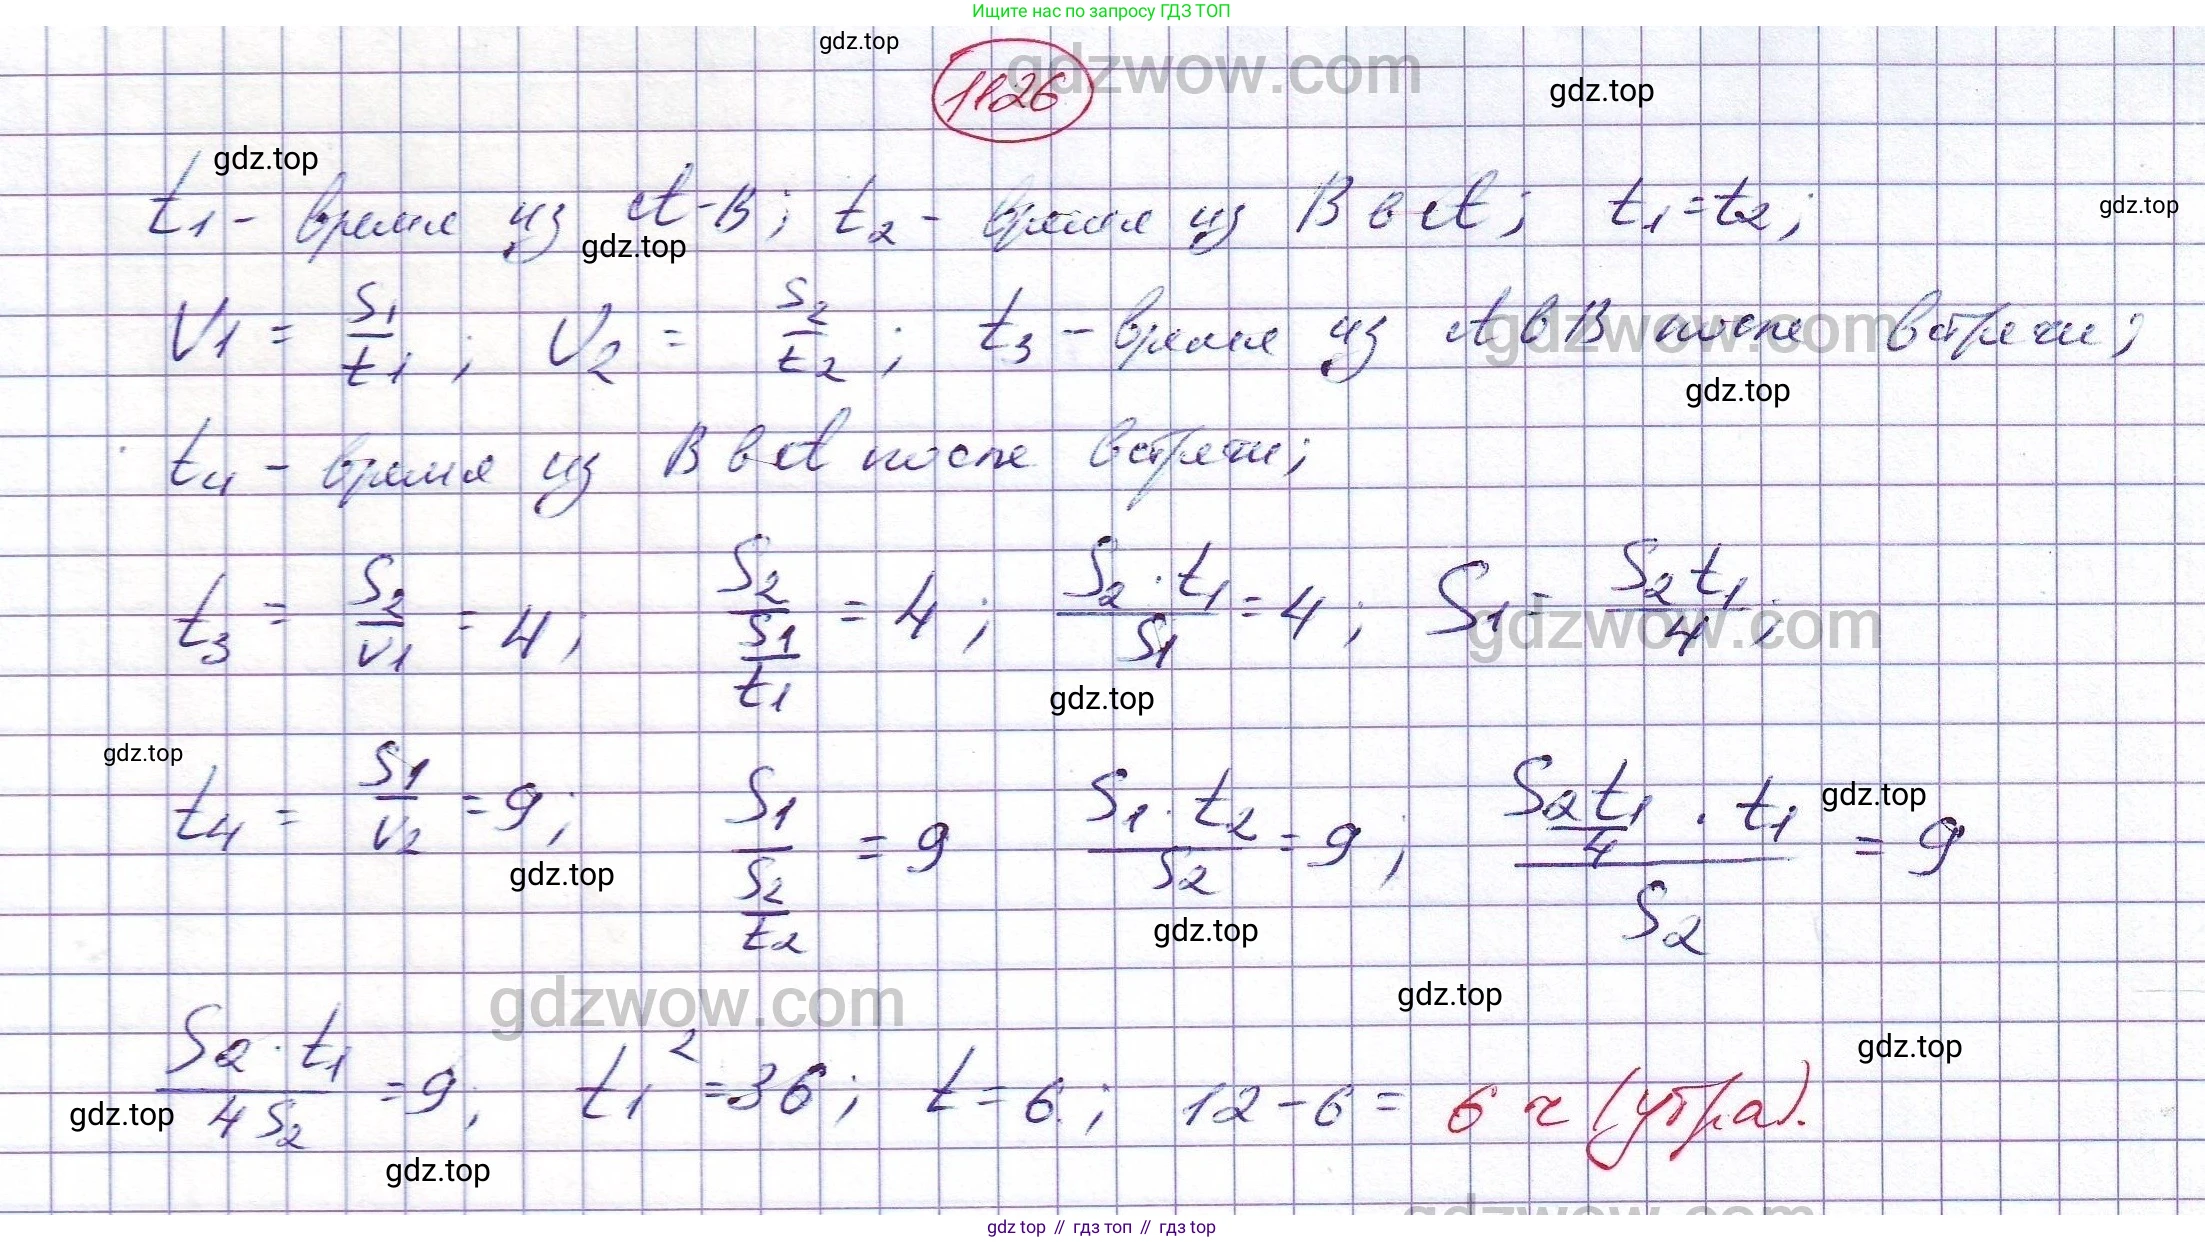 Ищите нас по запросу ГДЗ ТОП
gdz.top
1126
gdzwow.com
gdz.top
gdz.top
t₁ - время из A-B; t₂ - время из B в A; t₁ = t₂;
gdz.top
gdz.top
V₁ = S₁/t₁; V₂ = S₂/t₂; t₃ - время из A в B после встречи;
gdzwow.com
gdz.top
t₄ - время из B в A после встречи;
t₃ = S₂/V₁ = 4; S₂/(S₁/t₁) = 4; (S₂ · t₁)/S₁ = 4; S₁ = (S₂ t₁)/4;
gdzwow.com
gdz.top
gdz.top
t₄ = S₁/V₂ = 9; S₁/(S₂/t₂) = 9 (S₁ · t₂)/S₂ = 9; ((S₂ t₁)/4 · t₁)/S₂ = 9
gdz.top
gdz.top
gdz.top
gdzwow.com
gdz.top
gdz.top
(S₂ · t₁)/(4 S₂) = 9; t₁² = 36; t = 6; 12 - 6 = 6 ч (утра).
gdz.top
gdz.top
gdzwow.com
gdz top // гдз топ // гдз top